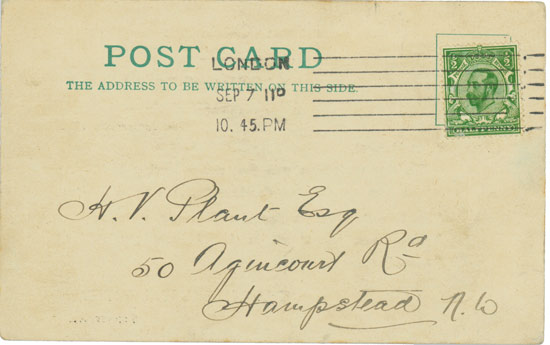 POST CARD
THE ADDRESS TO BE WRITTEN ON THIS SIDE.
LONDON
SEP 7 11
10. 45. PM
HALFPENNY
H. V. Plant Esq
50 Agincourt Rd
Hampstead N.W